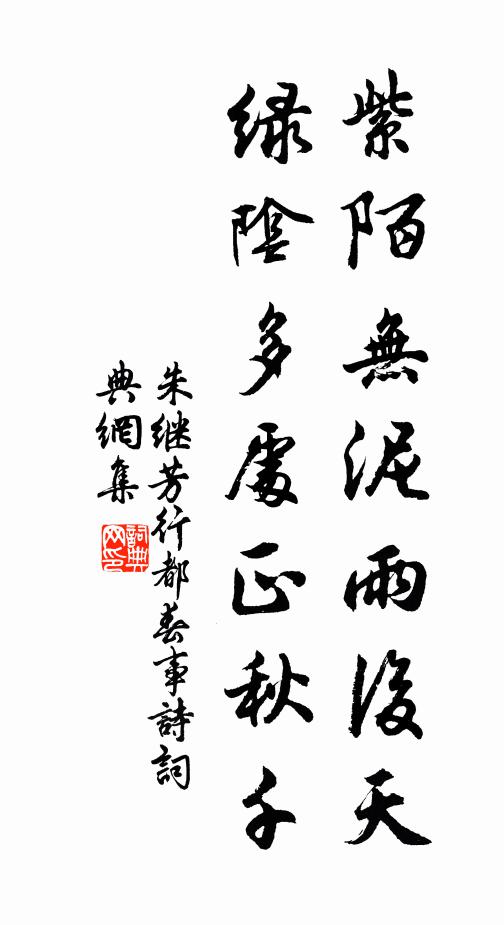 紫陌無泥雨後天
緑陰多處正秋千
朱继芳行都春事詩詞
典網集
詞典
网印